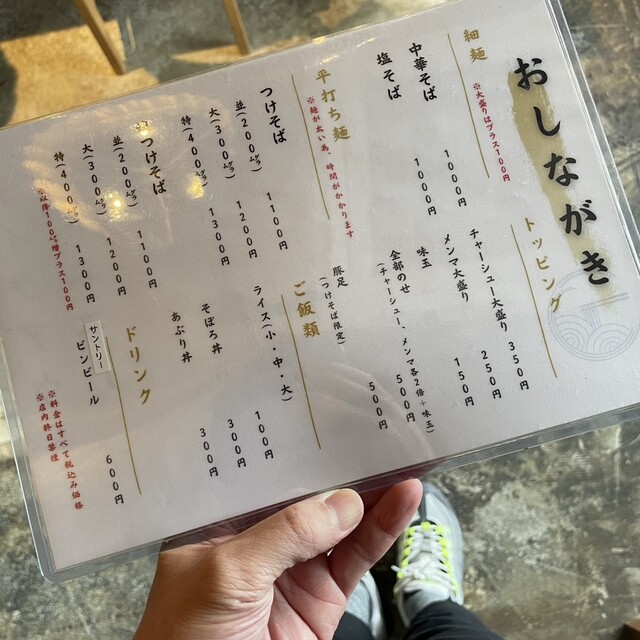 おしながき
細麺
※大盛りはプラス100円
中華そば 1000円
塩そば 1000円
平打ち麺
※麺が太い為、時間がかかります
つけそば
並(200㌘) 1100円
大(300㌘) 1200円
特(400㌘) 1300円
つけそば
並(200㌘) 1100円
大(300㌘) 1200円
特(400㌘) 1300円
※以降100㌘増プラス100円
トッピング
チャーシュー大盛り 350円
メンマ大盛り 250円
味玉 150円
全部のせ 500円
(チャーシュー、メンマ各2倍+味玉)
豚足 500円
(つけそば限定)
ご飯類
ライス(小・中・大) 100円
そぼろ丼 300円
あぶり丼 300円
ドリンク
サントリー
ビンビール 600円
※料金はすべて税込み価格
※店内終日禁煙